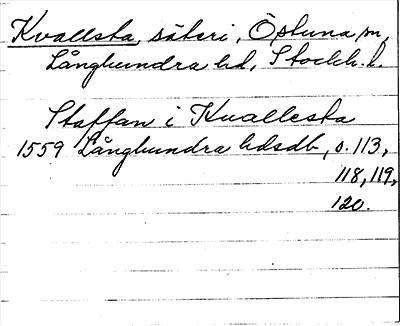 Kvallsta, säteri, Östuna sn,
Långhundra hd, Stockh. l.
Staffan i Kvallesta
1559 Långhundra hdsdb, s. 113,
118, 119,
120.